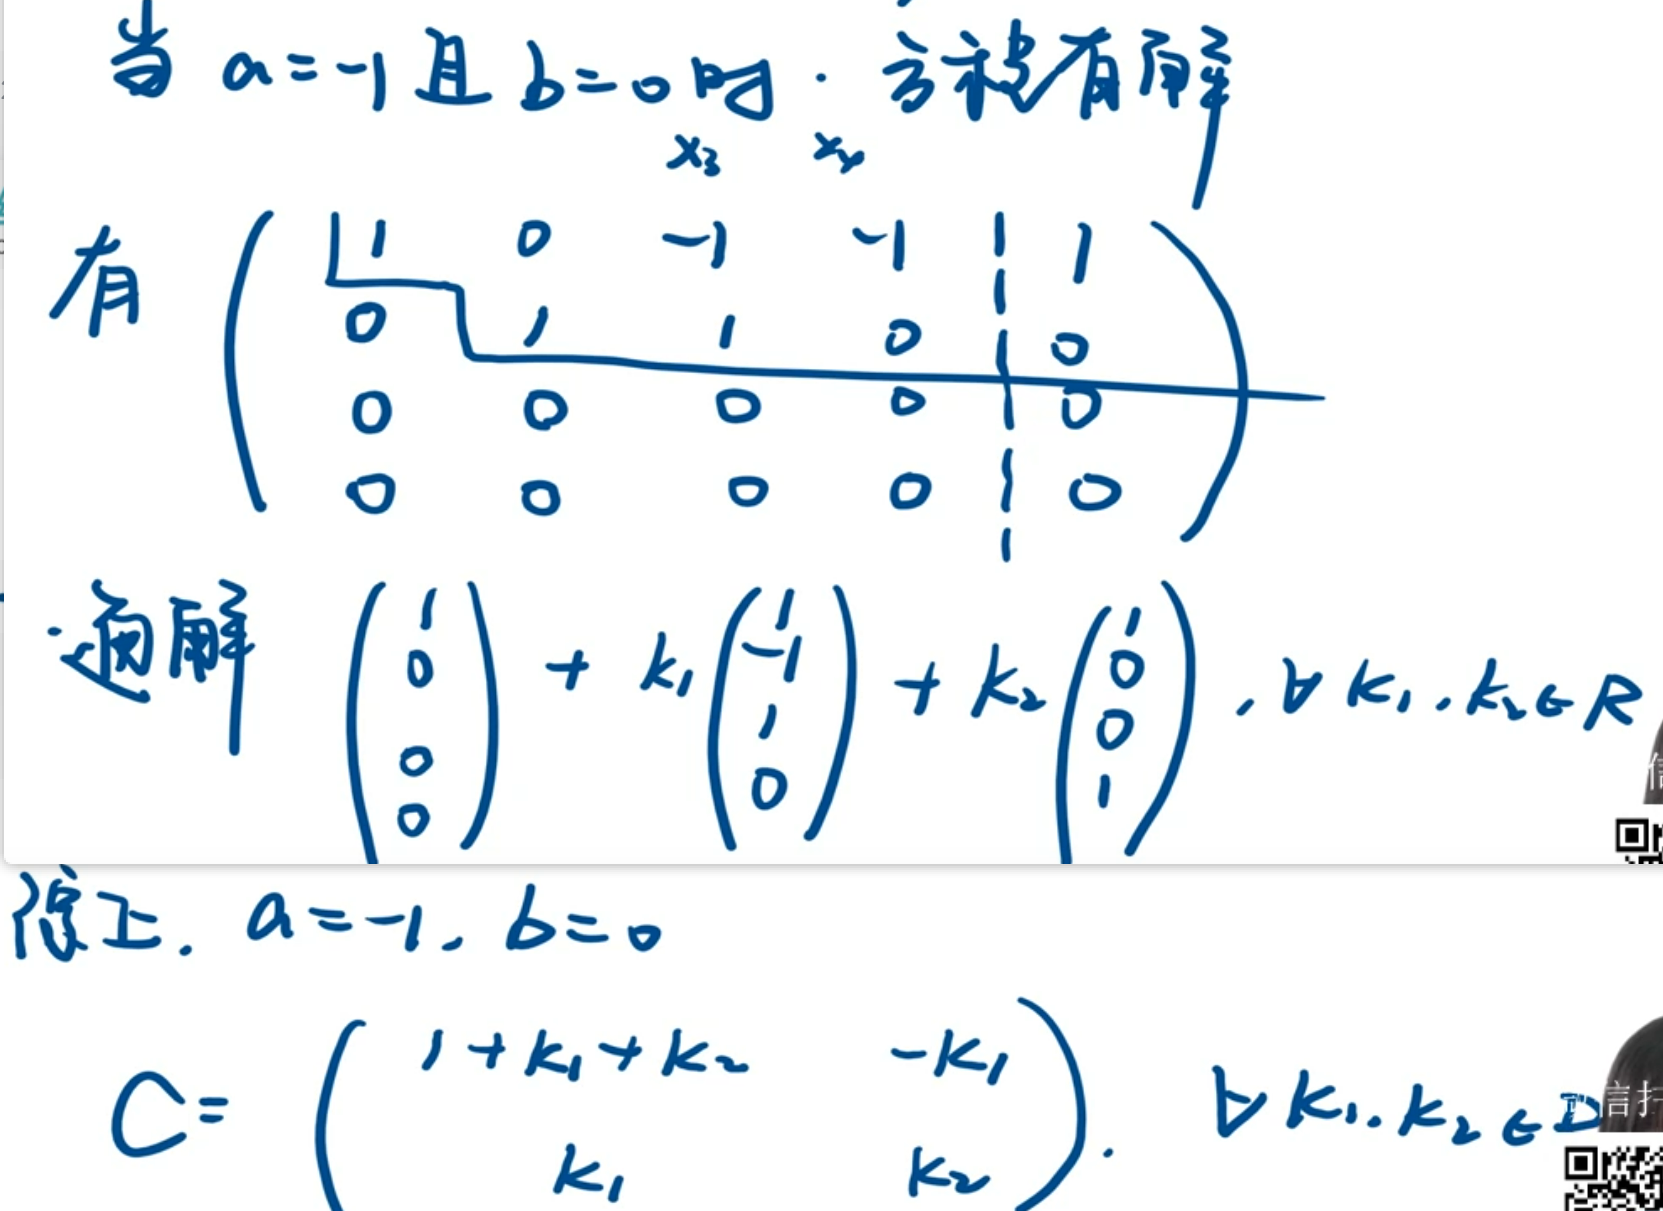 当 a=-1 且 b=0 时. 方程有解
x₃ x₄
有 ( 1 0 -1 -1 | 1
0 1 1 0 | 0
0 0 0 0 | 0
0 0 0 0 | 0 )
通解 (1 0 0 0) + k₁ (1 -1 1 0) + k₂ (1 0 0 1) , ∀ k₁, k₂ ∈ R
综上. a=-1, b=0
C = ( 1+k₁+k₂ -k₁
k₁ k₂ ). ∀ k₁, k₂ ∈
信扫